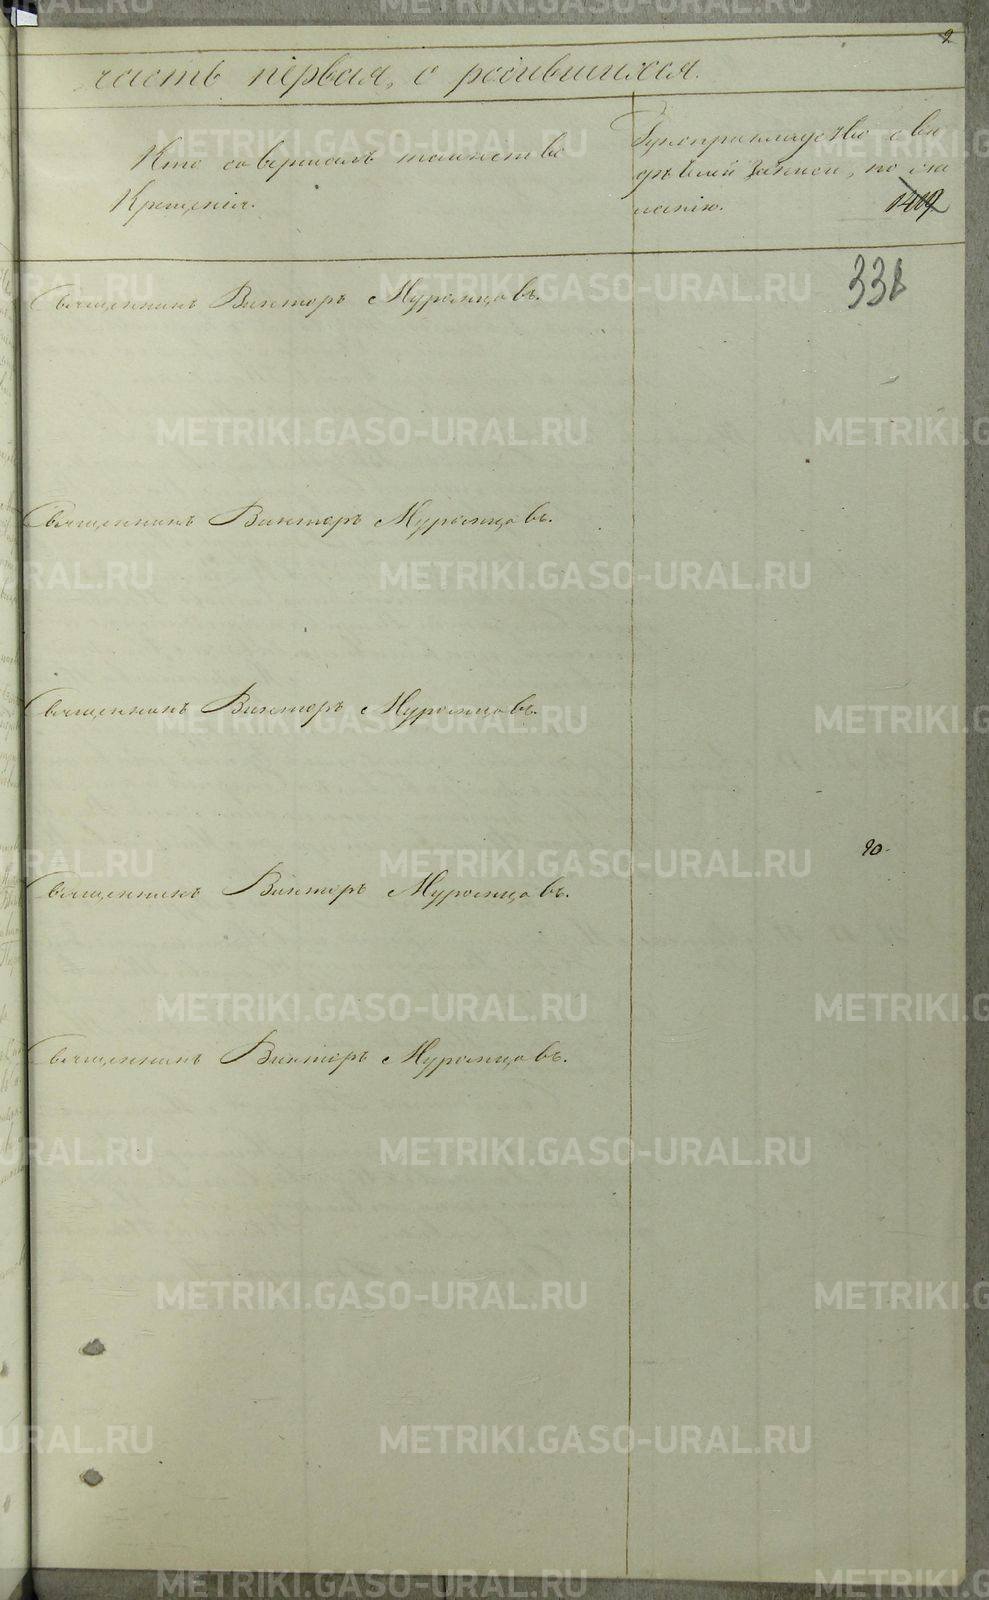 2
часть первая, о родившихся.
Кто совершалъ таинство
Крещенія.
Рукоприкладство сви
дѣтелей записи, по же
ланію.
1409
338
Священникъ Викторъ Муромцовъ.
Священникъ Викторъ Муромцовъ.
Священникъ Викторъ Муромцовъ.
90.
Священникъ Викторъ Муромцовъ.
Священникъ Викторъ Муромцовъ.
METRIKI.GASO-URAL.RU